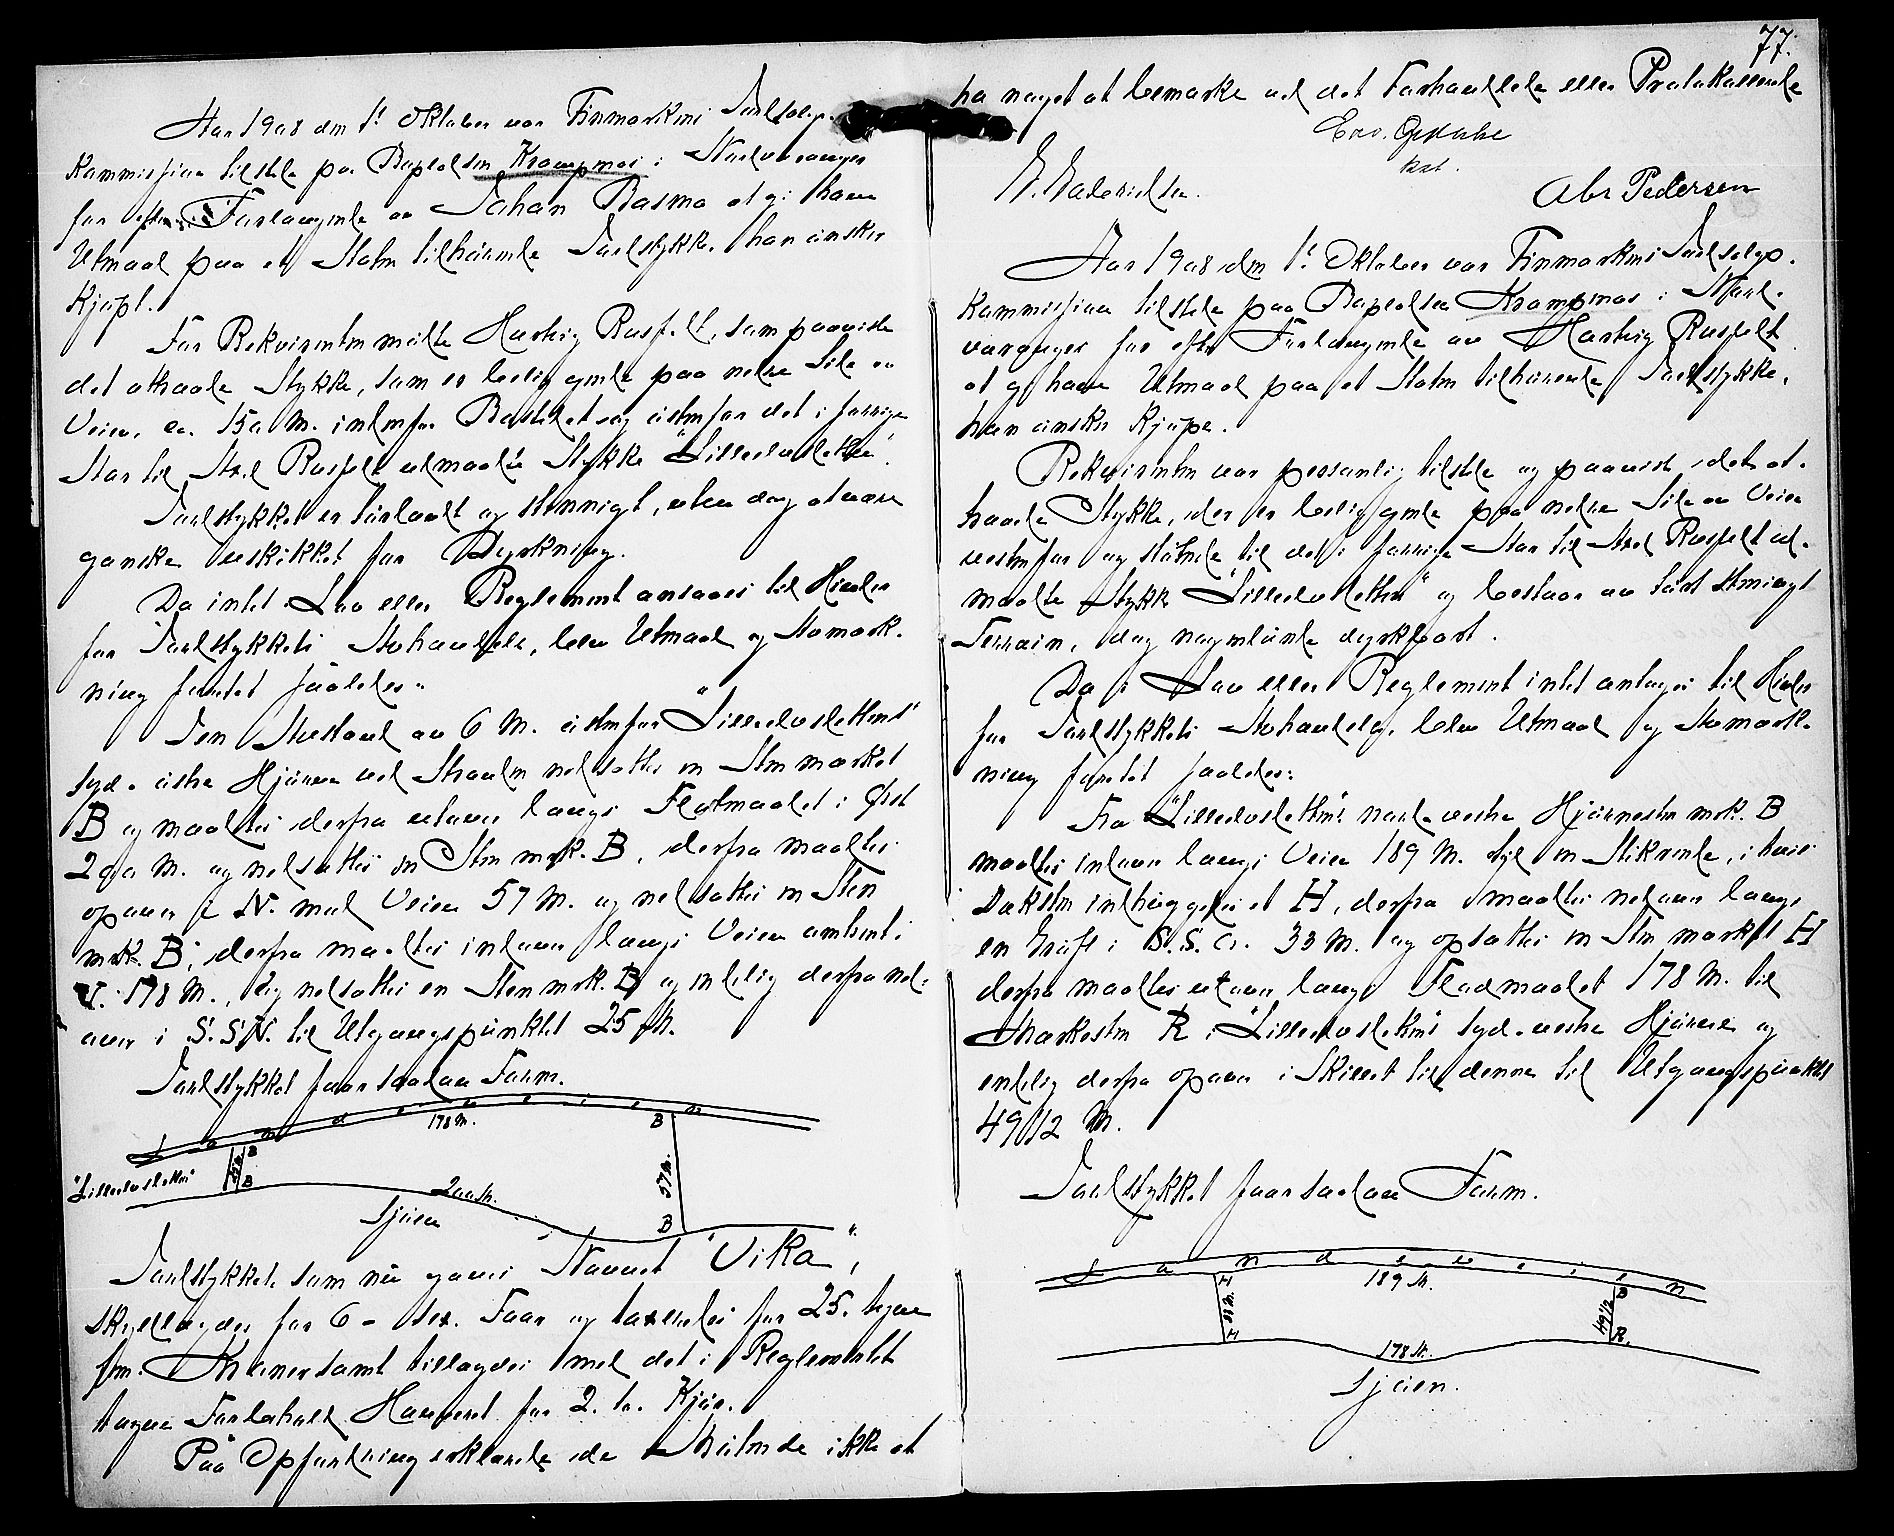 Aar 1908 den 1ste Oktober var Finmarkens Jordsalgs-
kommission tilstede paa Bopladsen Krampenes i Nordvaranger
for efter Forlangende av Johan Basma at gi ham
Utmaal paa et Staten tilhørende Jordstykke, han ønsker
kjøpt.
For Rekvirenten møtte Hartvig Rusfelt, som paaviste
det attraaede Stykke, som er beliggende paa nedre Side av
Veien, ca. 150 M. indenfor og østenfor det i forrige
Aar til Rusfelt utmaalte Stykke "Lilleelvsletten".
Jordstykket er tørlændt og stennigt, uten dog at være
ganske uskikket for Dyrkning.
Da intet i Lov eller Reglement ansaaes til Hinder
for Jordstykkets Avhændelse, blev Utmaal og Avmerk-
ning foretat saaledes:
I en Avstand av 6 M. østenfor "Lilleelvslettens"
syd-østre Hjørne ved Stranden nedsattes en Sten merket
B og maaltes derfra utover langs Flodmaalet i Øst
200 M. og nedsattes en Sten mrk. B, derfra maaltes
opover i N. mod Veien 57 M. og nedsattes en Sten
mrk. B, derfra maaltes indover langs Veien omtrent i
V. 178 M., og nedsattes en Sten mrk. B og endelig derfra ned-
over i S. til Utgangspunktet 25 M.
Jordstykket faar saadan Form.
L a n d e v e i e n
178 M. B
B
"Lilleelvsletten" 25 M. B 200 M. 57 M.
Sjøen B
Jordstykket, som nu gaves Navnet "Vika",
skyldlagdes for 6 - sex. Øre og taxeredes for 25, tyve
fem Kroner samt tillagdes med det i Reglementet
tagne Forbehold Havneret for 2. to. Kjør.
Paa Opfordring erklærede de Møtende ikke at
77.
ha noget at bemerke ved det Forhandlede eller Protokollerede
Abr Pedersen
Aar 1908 den 1ste Oktober var Finmarkens Jordsalgs-
kommission tilstede paa Bopladsen Krampenes i Nord-
varanger for efter Forlangende av Hartvig Rusfelt
at gi ham Utmaal paa et Staten tilhørende Jordstykke,
han ønsker kjøpe.
Rekvirenten var personlig tilstede og paaviste det at-
traaede Stykke, der er beliggende paa nedre Side av Veien
vestenfor og støtende til det i forrige Aar til Rusfelt ut-
maalte Stykke "Lilleelvsletten" og bestaar av tørt stenigt
Terrain, dog nogenlunde dyrkbart.
Da i Lov eller Reglement intet antages til Hinder
for Jordstykkets Avhændelse, blev Utmaal og Avmerk-
ning foretat saaledes:
Fra "Lilleelvslettens" nordvestre Hjørnesten mrk. B
maaltes indover langs Veien 189 M. til en Stikrende, i hvis
Dæksten indhuggedes et H, derfra maaltes nedover langs
en Grøft i S. S. O. 33 M. og opsattes en Sten merket H
derfra maaltes utover langs Flodmaalet 178 M. til
Merkesten R i "Lilleelvslettens" syd-vestre Hjørne og
endelig derfra opover i Skillet til denne til Utgangspunktet
49 1/2 M.
Jordstykket faar saadan Form.
L a n d e v e i e n
H 189 M. B
33 M. 49 1/2
H 178 M. R.
Sjøen.